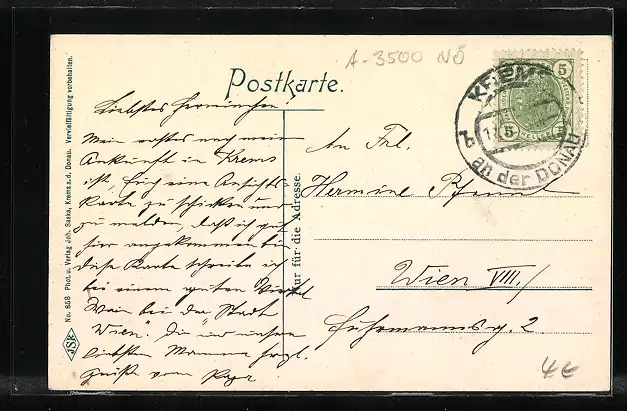 A-3500 NÖ
Postkarte.
KREMS
an der DONAU
b
5
5
Liebstes Herminchen!
Mein erstes nach meiner
Ankunft in Krems
ist, Euch eine Ansichts-
karte zu schicken und
zu melden, daß ich gut
hier angekommen bin
diese Karte schreibe ich
bei einem guten Viertel
Wein bei der "Stadt
Wien". Die und unsere
liebsten Mamma herzl.
Grüße vom Papa
An Frl.
Hermine
Wien VIII./
Fuhrmannsg. 2
4€
Nur für die Adresse.
No. 858 Phot. u. Verlag Joh. Saska, Krems a. d. Donau. Vervielfältigung vorbehalten.
JSK